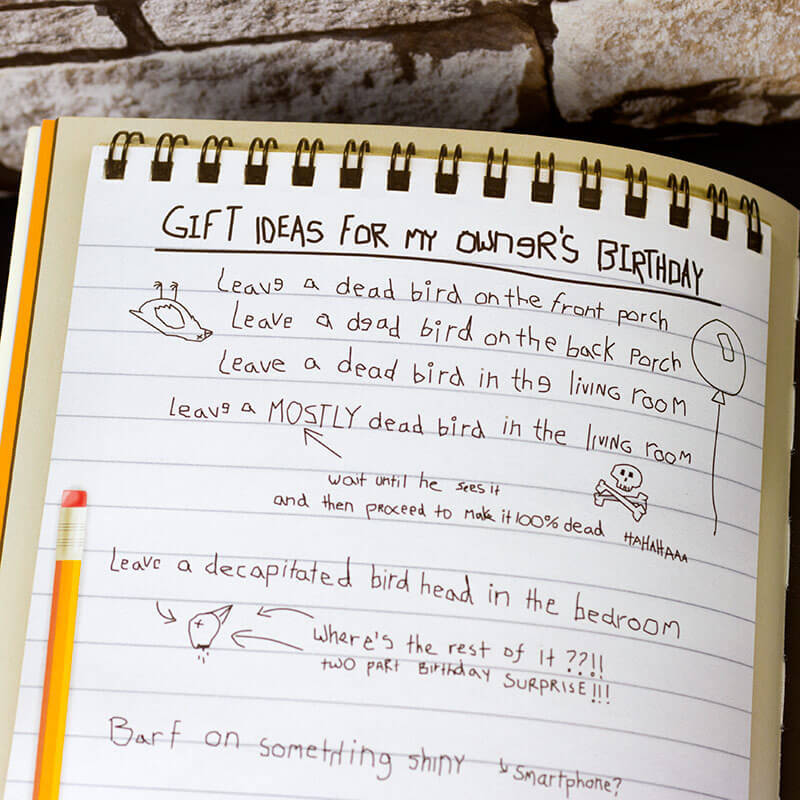 GIFT IDEAS FOR MY OWNER'S BIRTHDAY
Leave a dead bird on the front porch
Leave a dead bird on the back porch
Leave a dead bird in the living room
leave a MOSTLY dead bird in the living room
wait until he sees it
and then proceed to make it 100% dead HAHAHAAA
Leave a decapitated bird head in the bedroom
Where's the rest of it ??!!
TWO PART Birthday SURPRISE!!!
Barf on something shiny
Smartphone?